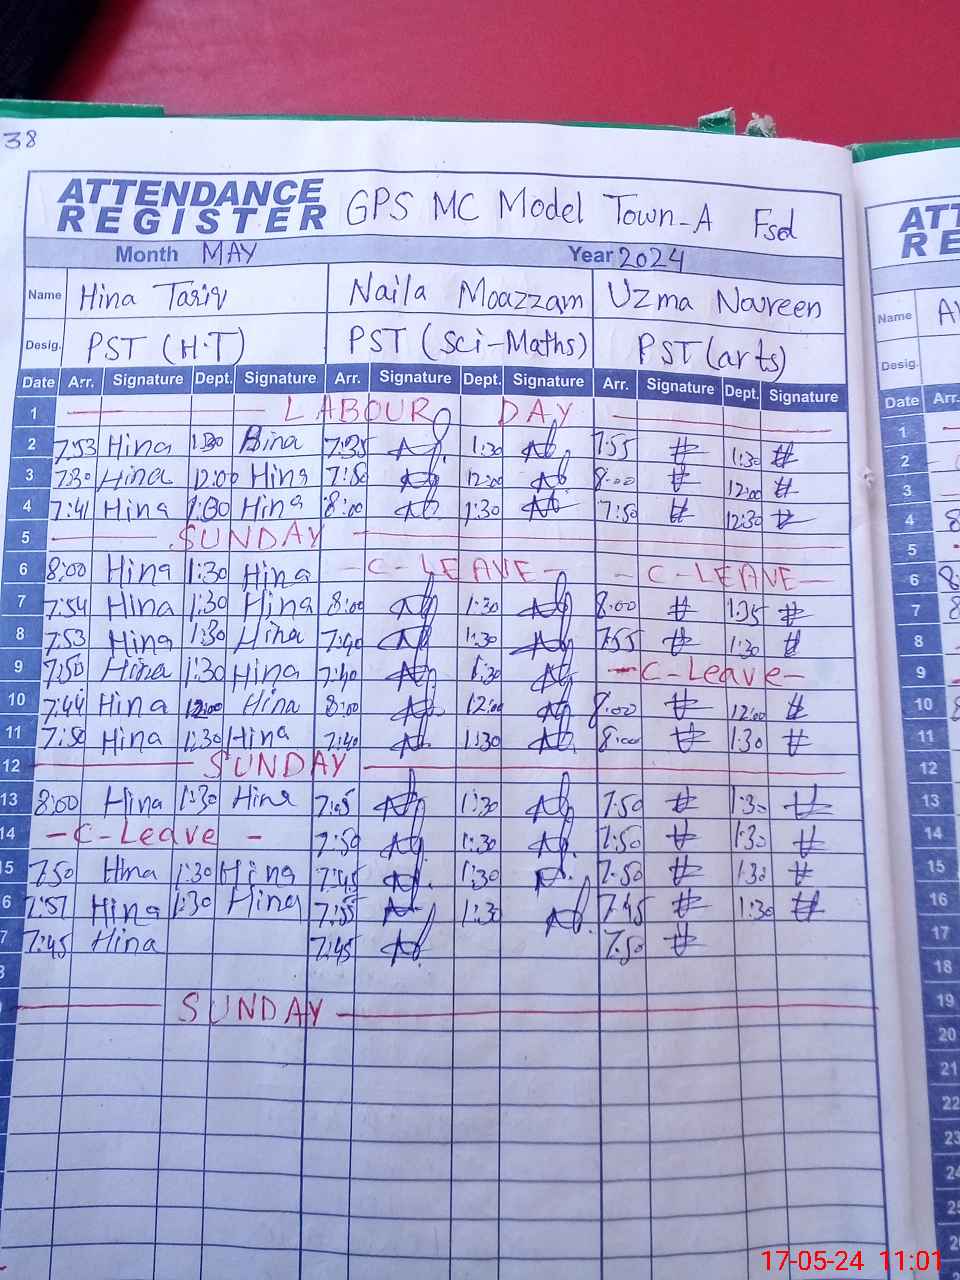 38
ATTENDANCE REGISTER GPS MC Model Town-A Fsd
Month MAY Year 2024
Name Hina Tariq Naila Moazzam Uzma Naureen
Desig. PST (H.T) PST (Sci-Maths) PST (arts)
Date Arr. Signature Dept. Signature Arr. Signature Dept. Signature Arr. Signature Dept. Signature
1 LABOUR DAY
2 7:53 Hina 1:30 Hina 7:35 1:30 7:55 1:30
3 7:30 Hina 12:00 Hina 7:50 12:00 8:00 12:00
4 7:41 Hina 1:30 Hina 8:00 1:30 7:50 12:30
5 SUNDAY
6 8:00 Hina 1:30 Hina - C-LEAVE - - C-LEAVE -
7 7:54 Hina 1:30 Hina 8:00 1:30 8:00 1:35
8 7:53 Hina 1:30 Hina 7:40 1:30 7:55 1:30
9 7:50 Hina 1:30 Hina 7:40 1:30 - C-Leave -
10 7:44 Hina 12:00 Hina 8:00 12:00 8:00 12:00
11 7:50 Hina 12:30 Hina 7:40 1:30 8:00 1:30
12 SUNDAY
13 8:00 Hina 1:30 Hina 7:45 1:30 7:50 1:30
14 - C-Leave - 7:50 1:30 7:50 1:30
15 7:50 Hina 1:30 Hina 7:45 1:30 7:50 1:30
16 7:57 Hina 1:30 Hina 7:55 1:30 7:45 1:30
17 7:45 Hina 7:45 7:50
SUNDAY
ATT
RE
Name
Desig.
Date Arr.
1
2
3
4
5
6
7
8
9
10
11
12
13
14
15
16
17
18
19
20
21
22
23
24
17-05-24 11:01